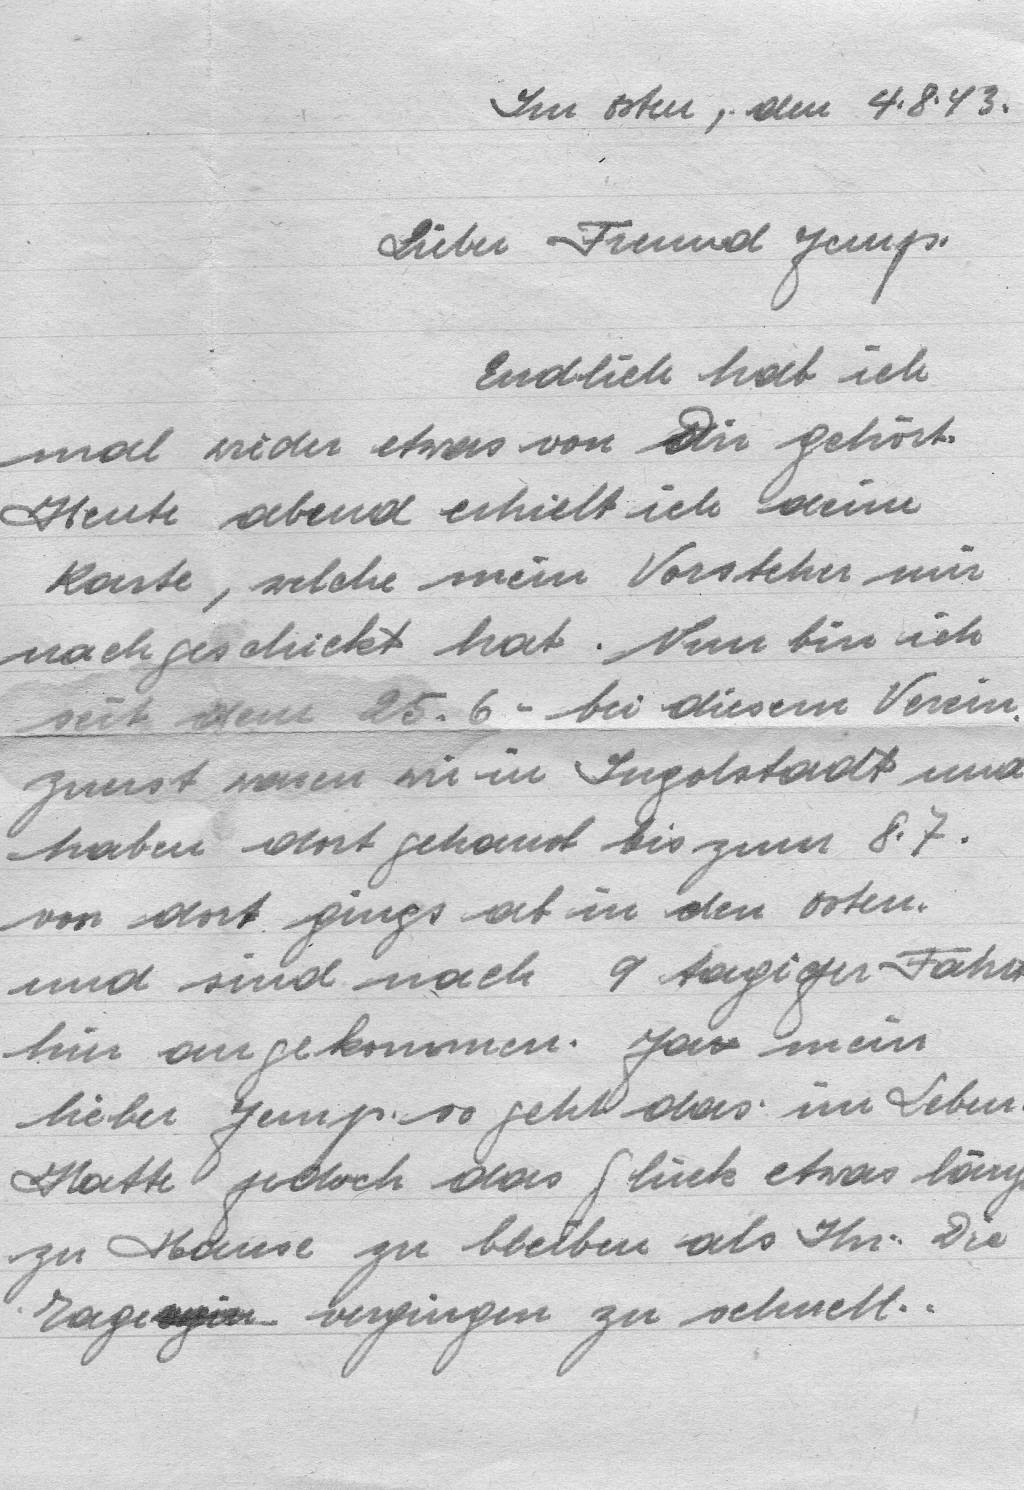 Im osten, den 4.8.43.
Lieber Freund Jemp.
Endlich hab ich
mal wieder etwas von Dir gehört.
Heute abend erhielt ich deine
Karte, welche mein Vorsteher mir
nachgeschickt hat. Nun bin ich
seit dem 25.6- bei diesem Verein.
Zuerst waren wir in Ingolstadt und
haben dort gehaust bis zum 8.7.
von dort gings ab in den osten.
und sind nach 9 tagiger Fahrt
hier angekommen. Ja mein
lieber Jemp. so geht das im Leben.
Hatte jedoch das Glück etwas läng
zu Hause zu bleiben als Ihr. Die
Tage vergingen zu schnell..